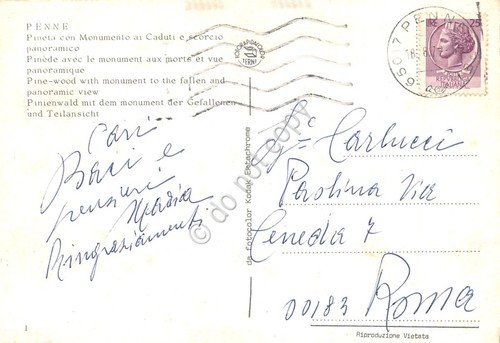 PENNE
Pineta con Monumento ai Caduti e scorcio
panoramico
Pinède avec le monument aux morts et vue
panoramique
Pine-wood with monument to the fallen and
panoramic view
Pinienwald mit dem monument der Gefallenen
und Teilansicht
Cari
Baci e
pensieri
Nadia
Ringraziamenti
1
da fotocolor Kodak Ektachrome
65017 PENNE
25
ITALIANA
Carlucci
Paolina Via
Ceneda 7
00183 Roma
Riproduzione Vietata
© do not copy